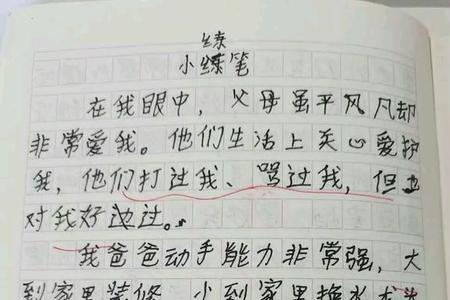 练
小练笔
在我眼中，父母虽平风凡却
非常爱我。他们生活上关心爱护
我，他们打过我、骂过我，但也
对我好过。
我爸爸动手能力非常强，大
到家里装修，小到家里换水龙头